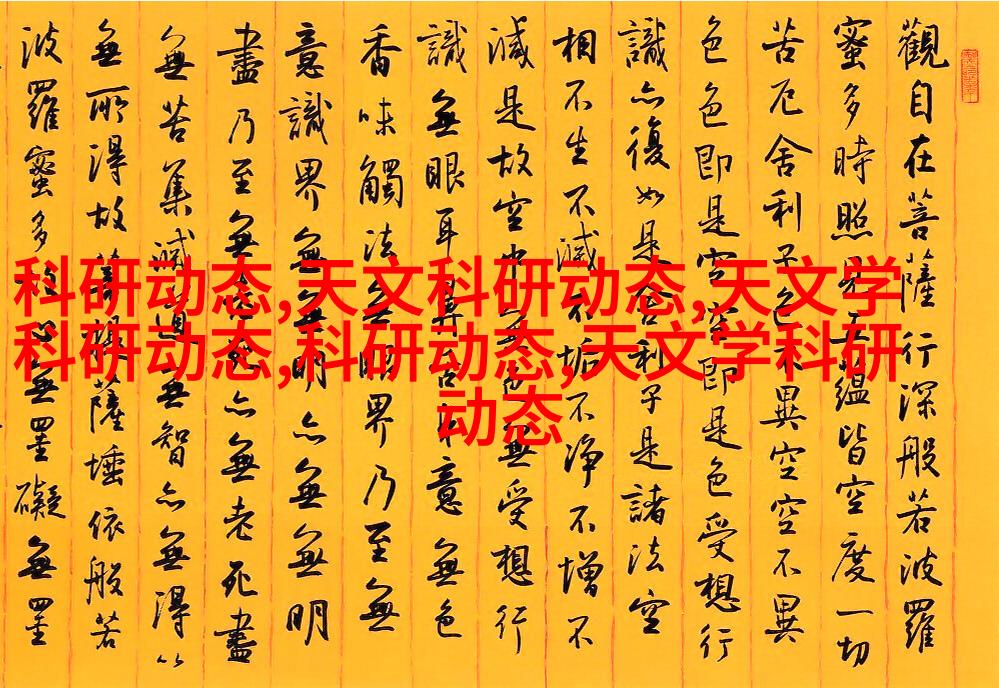 科研动态,天文科研动态,天文学
科研动态,科研动态,天文学科研
动态
觀自在菩薩行深般若波羅
蜜多時照見五蘊皆空度一切
苦厄舍利子色不異空空不異
色色即是空空即是色受想行
識亦復如是舍利子是諸法空
相不生不滅不垢不淨不增不
減是故空中無色無受想行
識無眼耳鼻舌身意無色
香味觸法無眼界乃至無
意識界無無明亦無無明
盡乃至無老死亦無老死盡
無苦集滅道無智亦無得以
無所得故菩提薩埵依般若
波羅蜜多故心無罣礙無罣